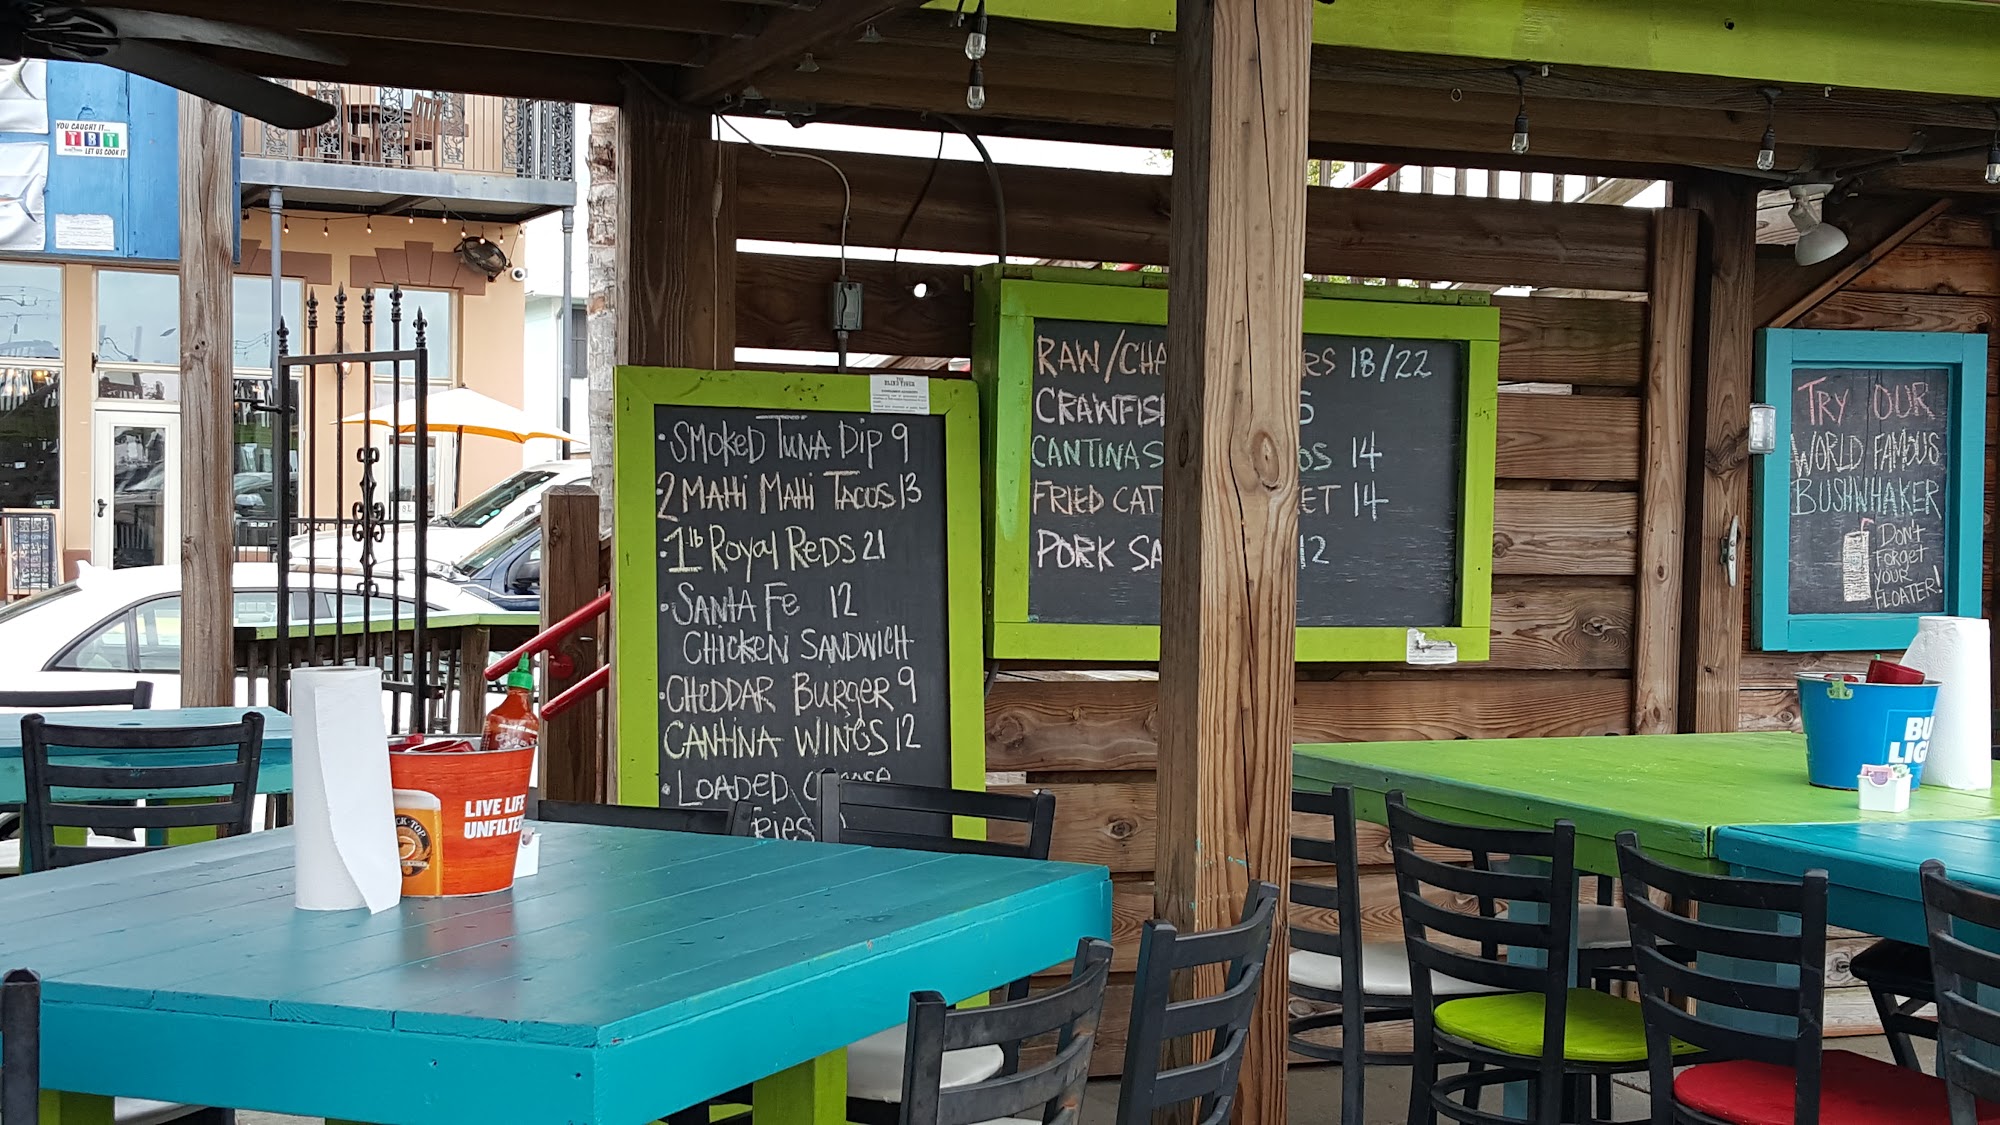 YOU CAUGHT IT...
TBT
LET US COOK IT
THE
BLIND TIGER
• SMOKED TUNA DIP 9
• 2 MAHI MAHI TACOS 13
• 1 lb ROYAL REDS 21
• SANTA FE 12
CHICKEN SANDWICH
• CHEDDAR BURGER 9
CANTINA WINGS 12
• LOADED
RAW/CHA RS 18/22
CRAWFIS
CANTINA S OS 14
FRIED CAT ET 14
PORK SA 12
TRY OUR
WORLD FAMOUS
BUSHWHAKER
DON'T
FORGET
YOUR
FLOATER!
LIVE LIFE
UNFILTE
CK-TOP
BU
LIG